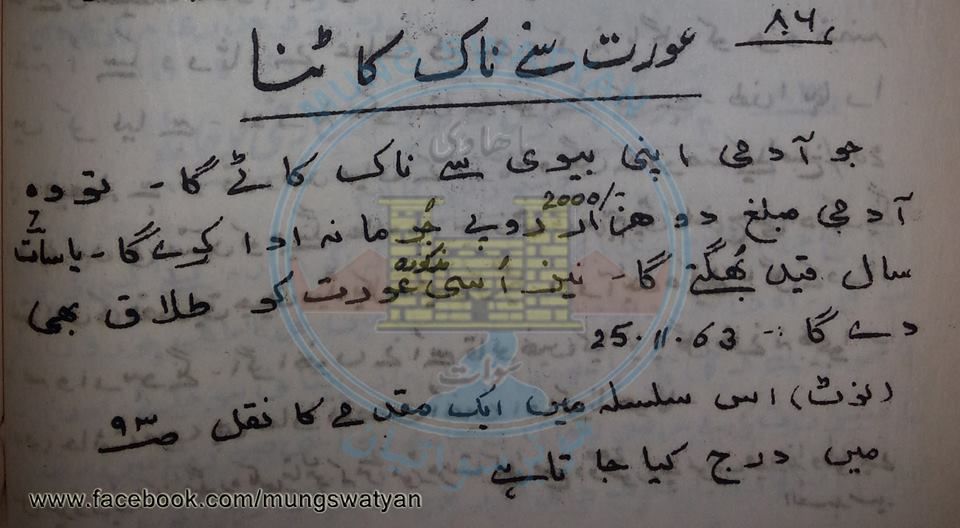 ۸۶
عورت سے ناک کاٹنا
جو آدمی اپنی بیوی سے ناک کاٹے گا۔ تو وہ
آدمی مبلغ دو ھزار 2000/ روپے جُرمانہ ادا کرے گا۔ یا سات 7
سال قید بھُگتے گا۔ نیز اُسی مذکورہ عورت کو طلاق بھی
دے گا :- 25.11.63
(نوٹ) اس سلسلہ میں ایک مقدمے کا نقل صـ ۹۳
میں درج کیا جاتا ہے
سوات
www.facebook.com/mungswatyan